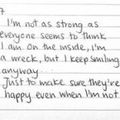 7
I'm not as strong as
everyone seems to think
I am. On the inside, I'm
a wreck, but I keep smiling
anyway...
Just to make sure they're
happy even when I'm not.